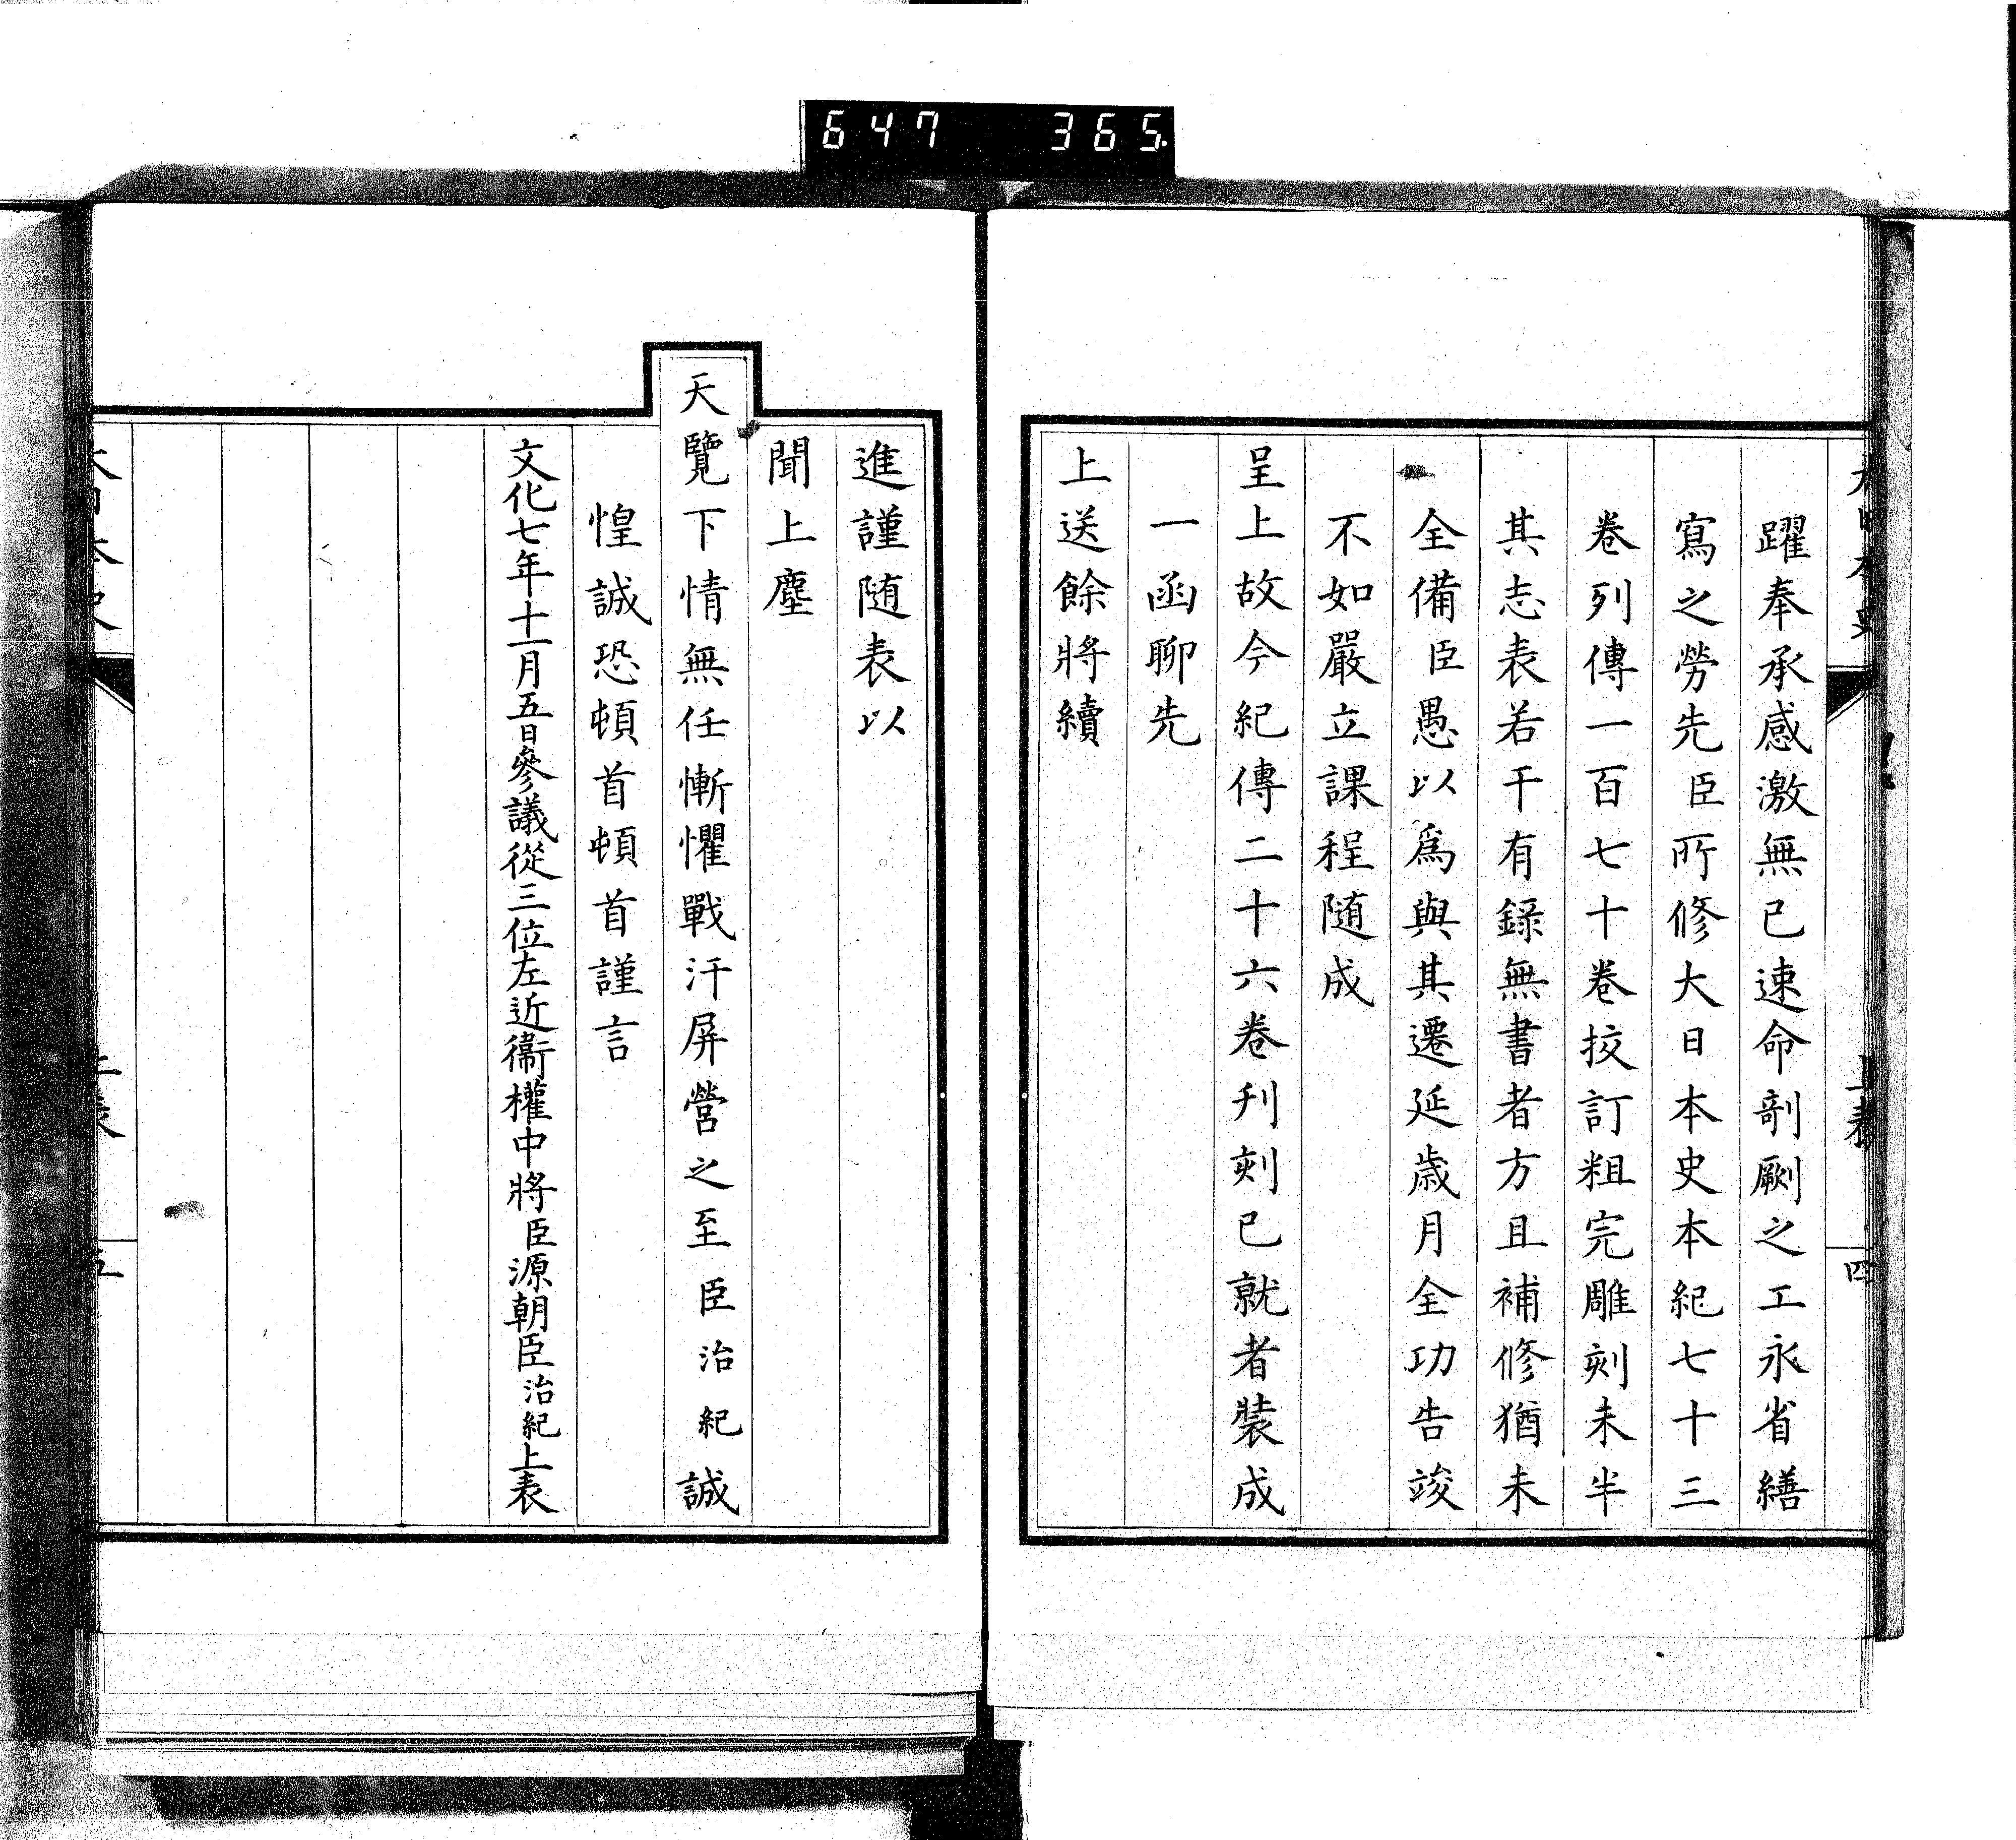 647 365
大日本史 上表 四
躍奉承感激無已速命剞劂之工永省繕
寫之勞先臣所修大日本史本紀七十三
卷列傳一百七十卷挍訂粗完雕刻未半
其志表若干有録無書者方且補修猶未
全備臣愚以爲與其遷延歳月全功告竣
不如嚴立課程随成
呈上故今紀傳二十六卷刋刻已就者裝成
一函聊先
上送餘將續
進謹随表以
聞上塵
天覽下情無任慚懼戰汗屏營之至臣治紀誠
惶誠恐頓首頓首謹言
文化七年十二月五日參議從三位左近衞權中將臣源朝臣治紀上表
大日本史 上表 五